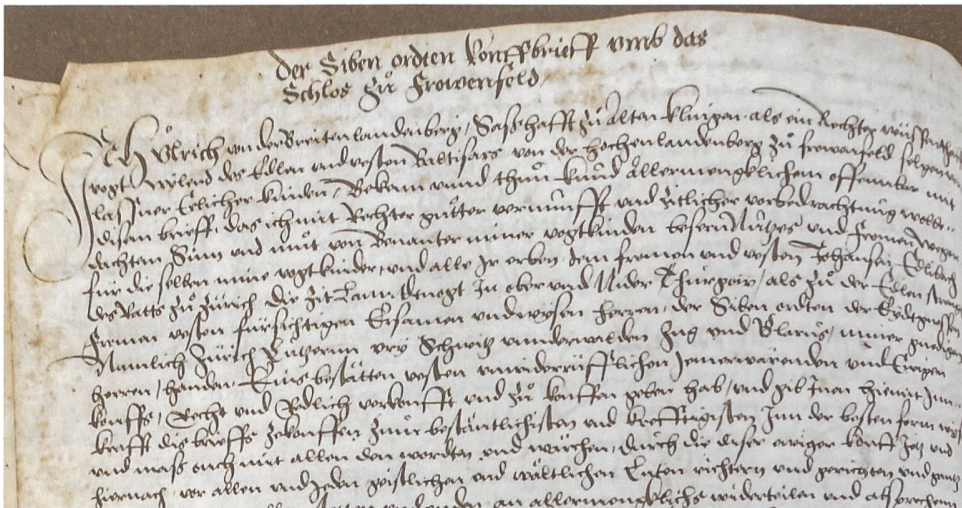 Der Siben ordten kouffbrieff vmb das
Schlos zů Frowenfeld
Ich Ůlrich von der Breitenlandenberg, Sässhafft zů Alten klingen als ein Rechter
vogt wÿlend des Edlen und vesten Baltisars von der hochenlandenberg zů frowenfeld seligen
lassner Eelicher kinden, Bekenn unnd thůn kund allermengklichem offennbar mit
disem brieff, das ich mit Rechter gůtter vernunfft und zitlicher vorbedrachtung wolbe
dachten Sinn und můt von Benanter miner vogtkinden bessern Nutzes und fromen wegen
für die selben mine vogtkinder, und alle Ir erben, dem fromen und vesten Johansen Edlibach
des Ratts zů Zürich die Zit Lanndtvogt In ober und Nider Thurgöw, als zů der Edlen
fromen vesten fürsichtigen Ersamen und wysen herren, der Siben ordten der Eydtgnossen
Namlich Zürich Lutzernn ury Schwitz underwalden Zug und Glarus, miner gnedigen
herren, handen, Eins bestätten vesten unwiderrüfflichen Jemerwärenden und Ewigen
kouffs, Recht und Redlich verkoufft und zů kouffen geben hab, und gib Inen hiemit Inn
krafft dis brieffs zekouffen zum bestäntlichisten und krefftigisten Inn der besten form
und mass auch mit allen den worten und würcken, durch die diser ewiger kouff Jetz und
hiernach, vor allen und Jeden geistlichen und wältlichen Lüten richtern und gerichten und gentz
an allermengklichs widerteilen und absprechen